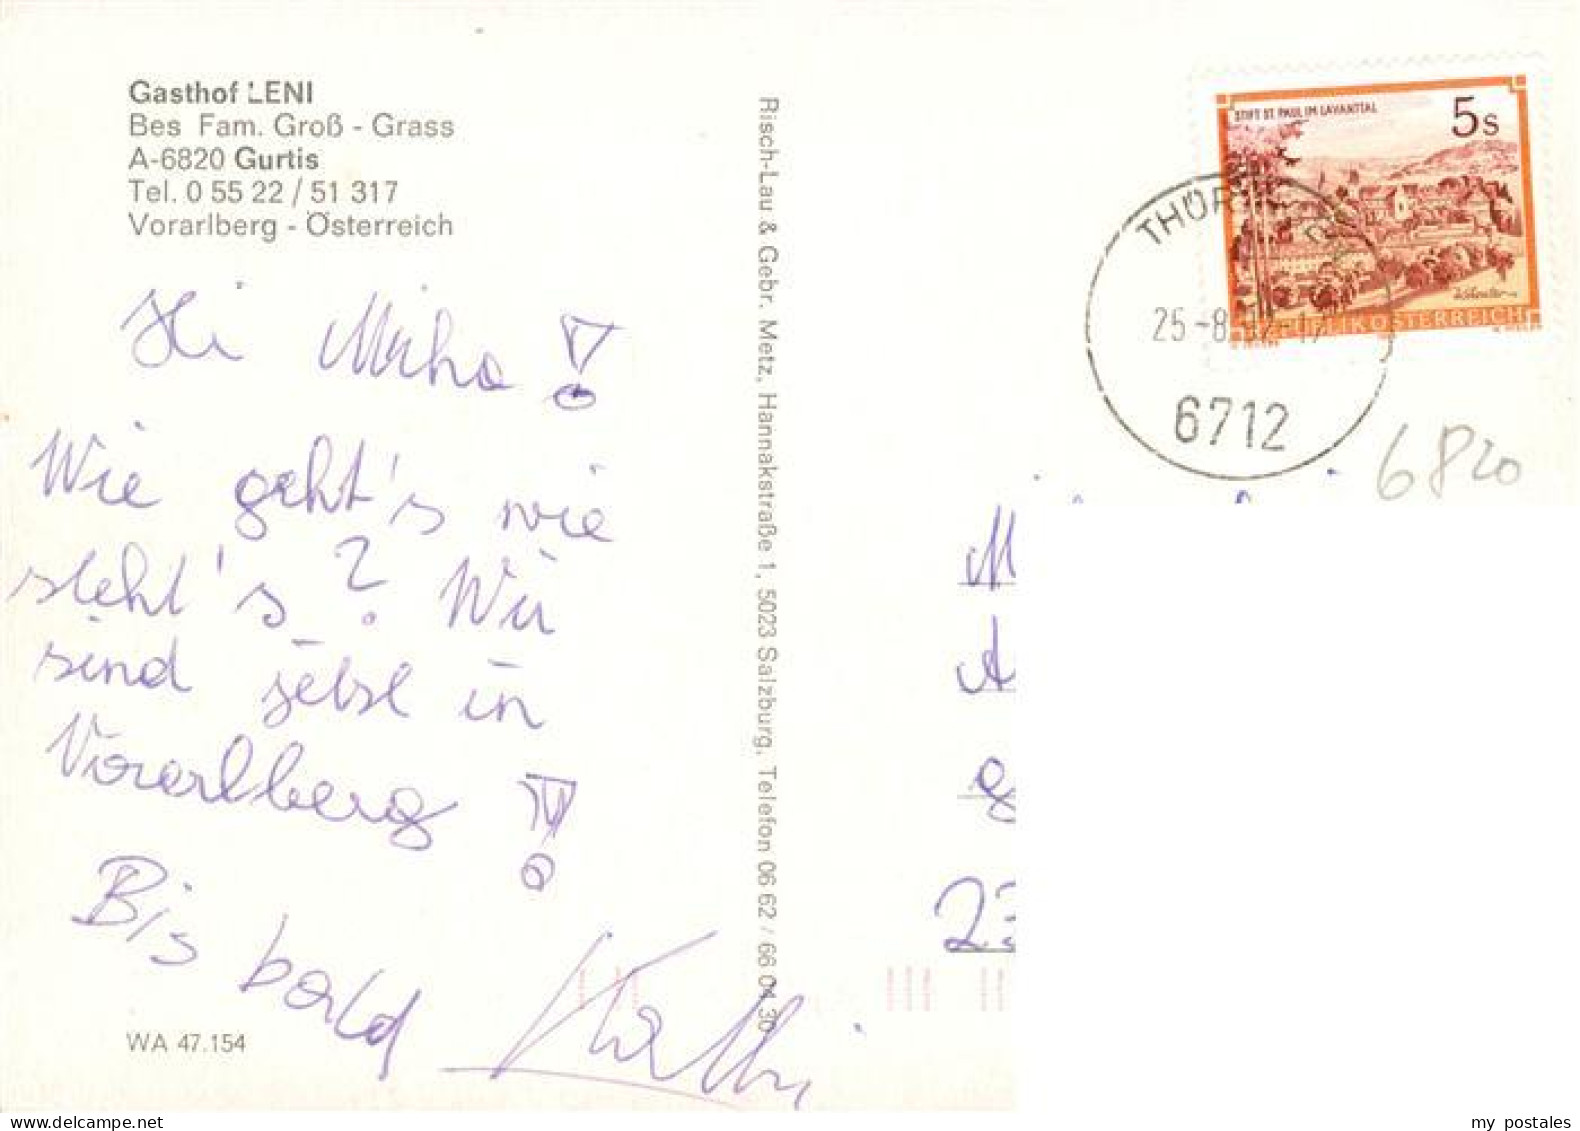 Gasthof LENI
Bes Fam. Groß - Grass
A-6820 Gurtis
Tel. 0 55 22 / 51 317
Vorarlberg - Österreich
Hi Miha!
Wie geht's wie
steht's? Wir
sind jetzt in
Vorarlberg!
Bis bald
Kathi
WA 47.154
Risch-Lau & Gebr. Metz, Hannakstraße 1, 5023 Salzburg, Telefon 06 62 / 66 04 30
STIFT ST. PAUL IM LAVANTTAL
5 S
REPUBLIK ÖSTERREICH
THÜR
25.-8.92-17
6712
6820
M
A
g
23
my postales